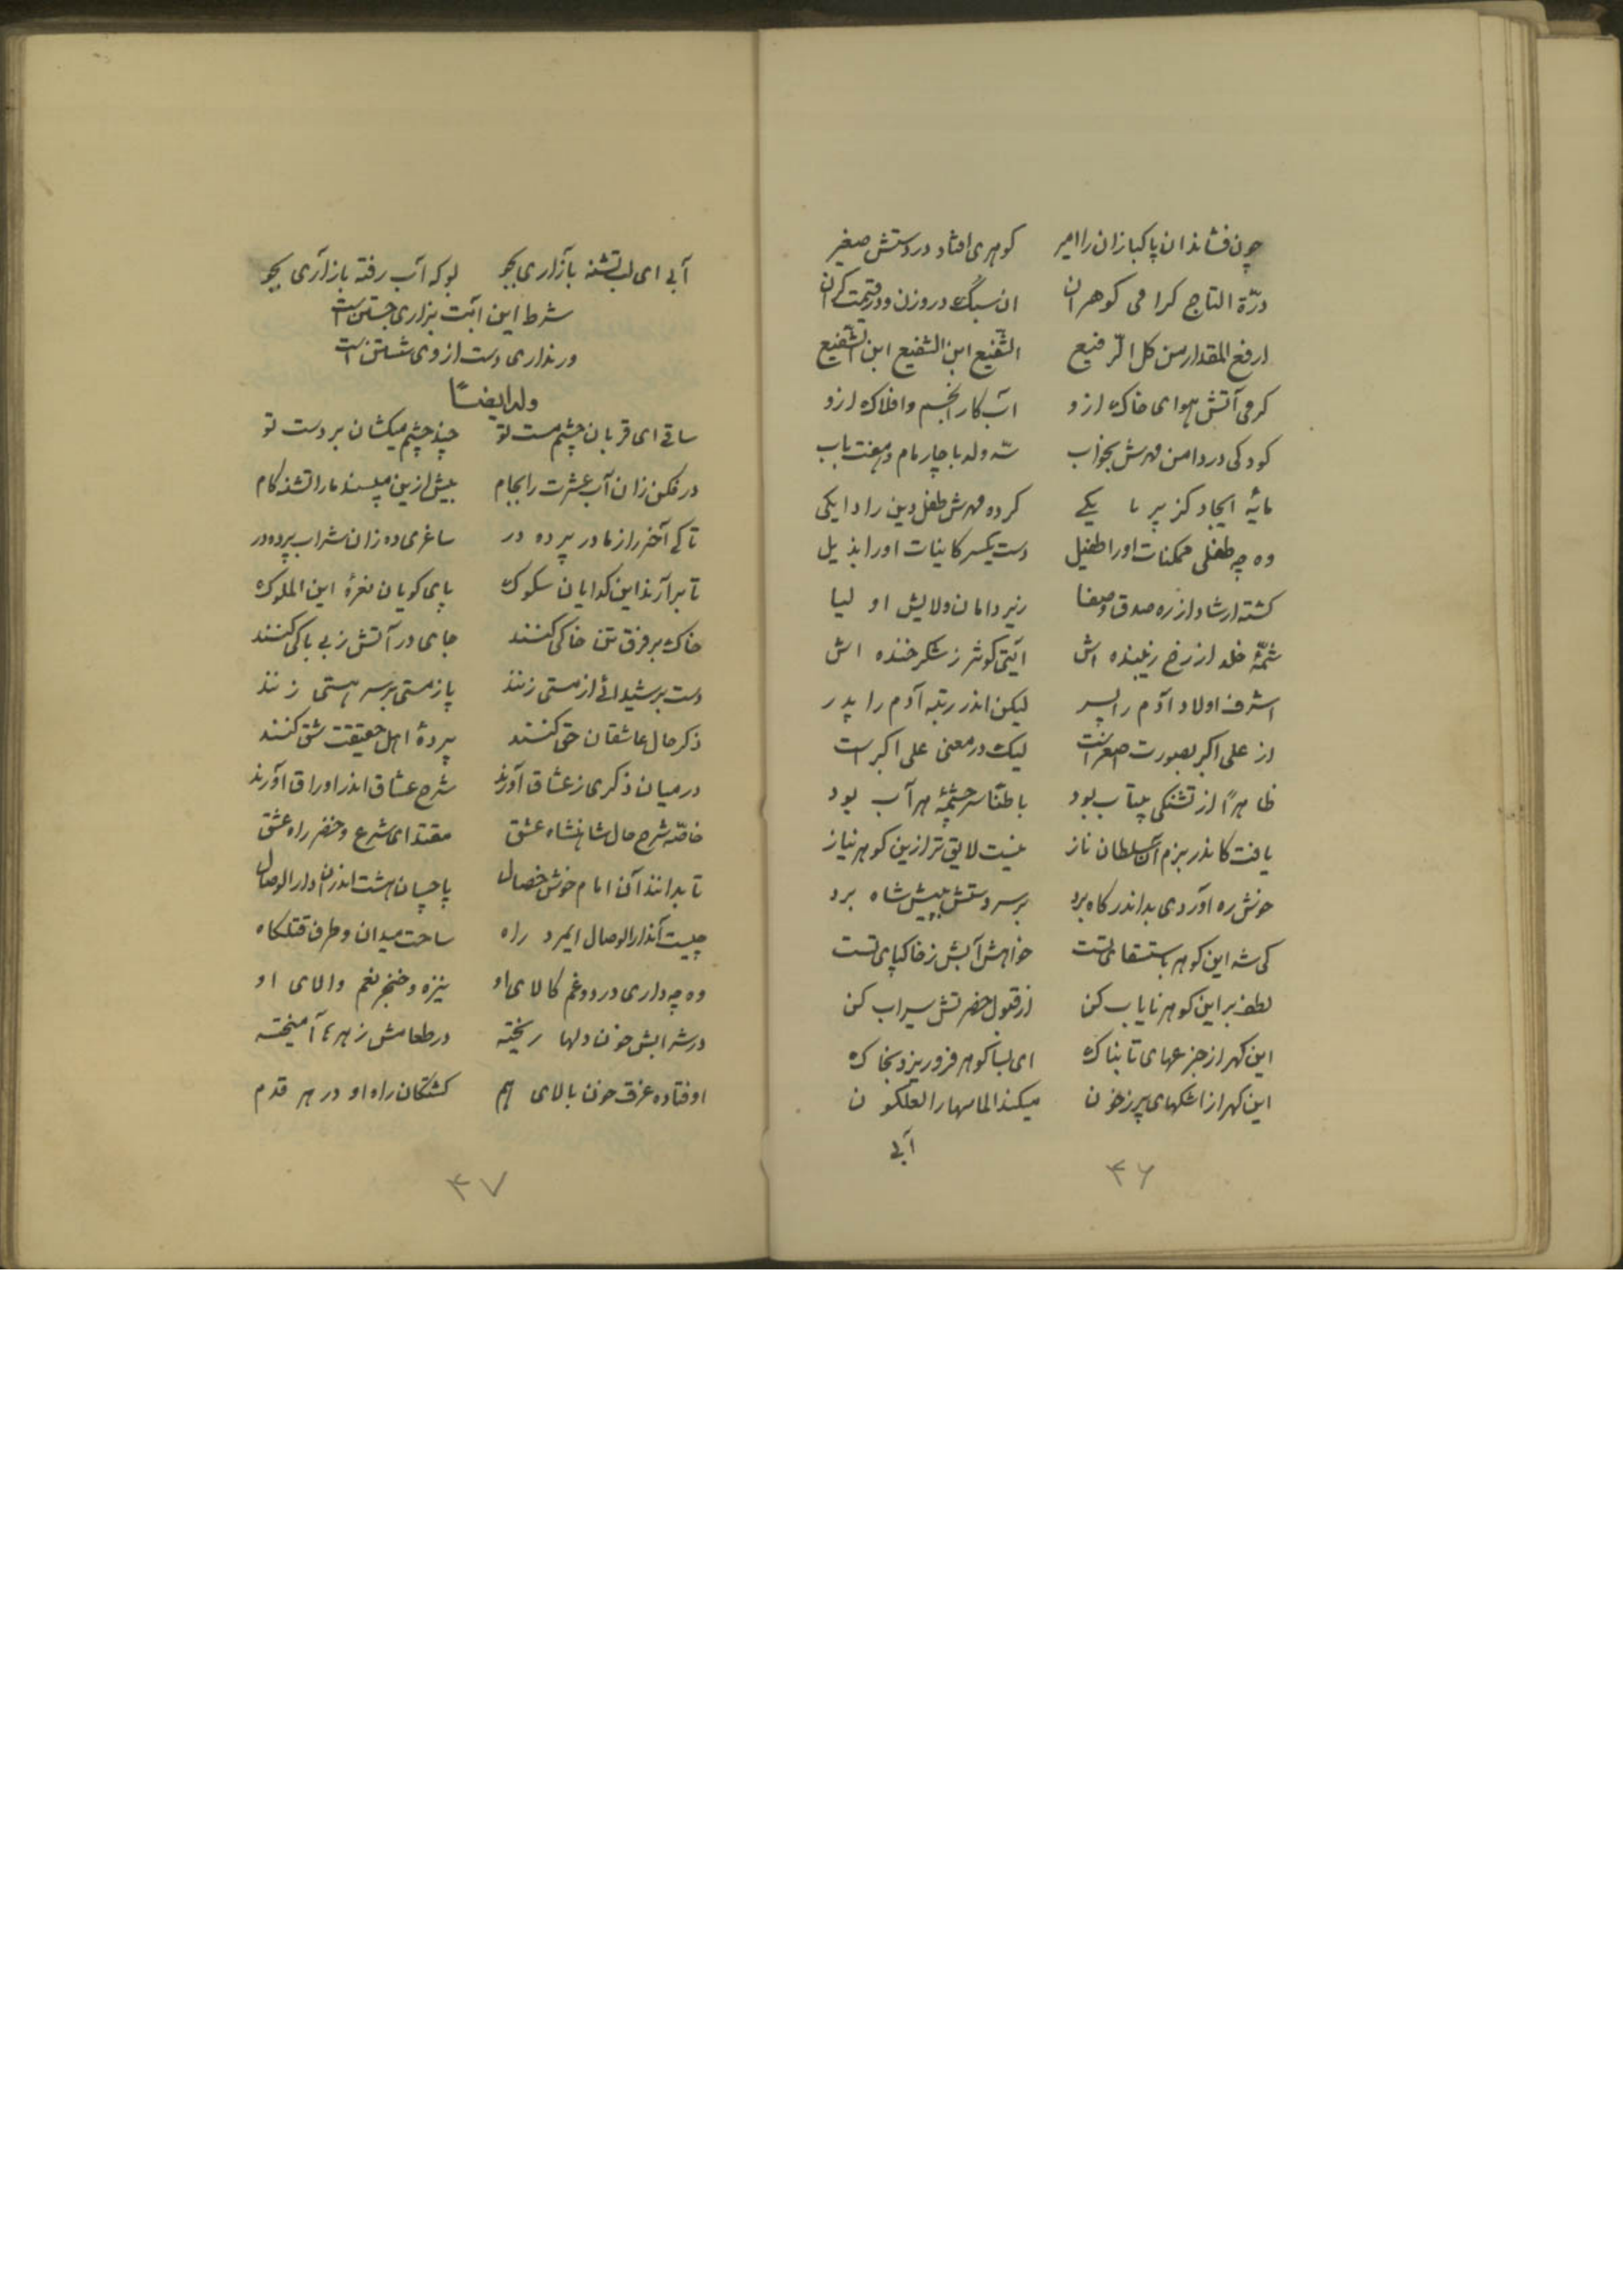 چون فشاند ان پاکبازان را امیر کوهری افتاد در دستش صغیر
درّة التاج کرامی کوهران ان سبک در وزن و در قیمت کران
ارفع المقدار من کل الرفیع الشفیع ابن الشفیع ابن الشفیع
کرمی آتش هوای خاک ازو آب کار انجم و افلاک ازو
کودکی در دامن مهرش بخواب سه ولد با چار مام و هفت باب
مایهٔ ایجاد کز پر ما یکی کرده مهرش طفل دین را دایکی
وه چه طفلی ممکنات او را طفیل دست یکسر کاینات او را بذیل
کشته ارشاد از ره صدق و صفا زیر دامان ولایش اولیا
شمّهٔ خلد از رخ زیبنده اش آیتی کوثر ز شکر خنده اش
اشرف اولاد آدم را پسر لیکن اندر رتبه آدم را پدر
از علی اکبر بصورت اصغر است لیک در معنی علی اکبر است
ظاهراً از تشنکی بیتاب بود باطناً سر چشمهٔ هر آب بود
یافت کاندر بزم آن سلطان ناز نیست لایق تر ازین کوهر نیاز
خوش ره آوردی بد اندر کاه برد بر سر دستش بپیش شاه برد
کی شه این کوهر باستسقای تست خواهش آبش ز خاکپای تست
لطف بر این کوهر نایاب کن از قبول حضرتش سیراب کن
این کهر از جزعهای تابناک ای بسا کوهر فرو ریزد بخاک
این کهر از اشکهای پر ز خون میکند الماسها را لعلکون
آبی
۴۶
آبی ای لب تشنه باز آری بجو بو که آب رفته باز آری بجو
شرط این آبت بزاری جستن است
ور نداری دست از وی شستن است
وله ایضاً
ساقی ای قربان چشم مست تو چند چشم میکشان بر دست تو
در فکن زان آب عشرت را بجام بیش ازین مپسند ما را تشنه کام
تا کی آخر راز ما در پرده در ساغری ده زان شراب پرده در
تا برآرند این کدایان سکوک پای کوبان نعرهٔ این الملوک
خاک بر فرق تن خاکی کنند جای در آتش ز بی باکی کنند
دست بر شیدائی از مستی زنند پا ز مستی بر سر هستی زنند
ذکر حال عاشقان حق کنند پردهٔ اهل حقیقت شق کنند
در میان ذکری ز عشاق آورند شرح عشاق اندر اوراق آورند
خاصّه شرح حال شاهنشاه عشق مقتدای شرع و خضر راه عشق
تا بدانند آن امام خوش خصال پا چسان هشت اندران دار الوصال
چیست آندار الوصال ایمرد راه ساحت میدان و طرف قتلکاه
وه چه داری درد و غم کالای او نیزه و خنجر نعم والای او
در شرابش خون دلها ریخته در طعامش زهرها آمیخته
اوفتاده غرق خون بالای هم کشتکان راه او در هر قدم
۴۷